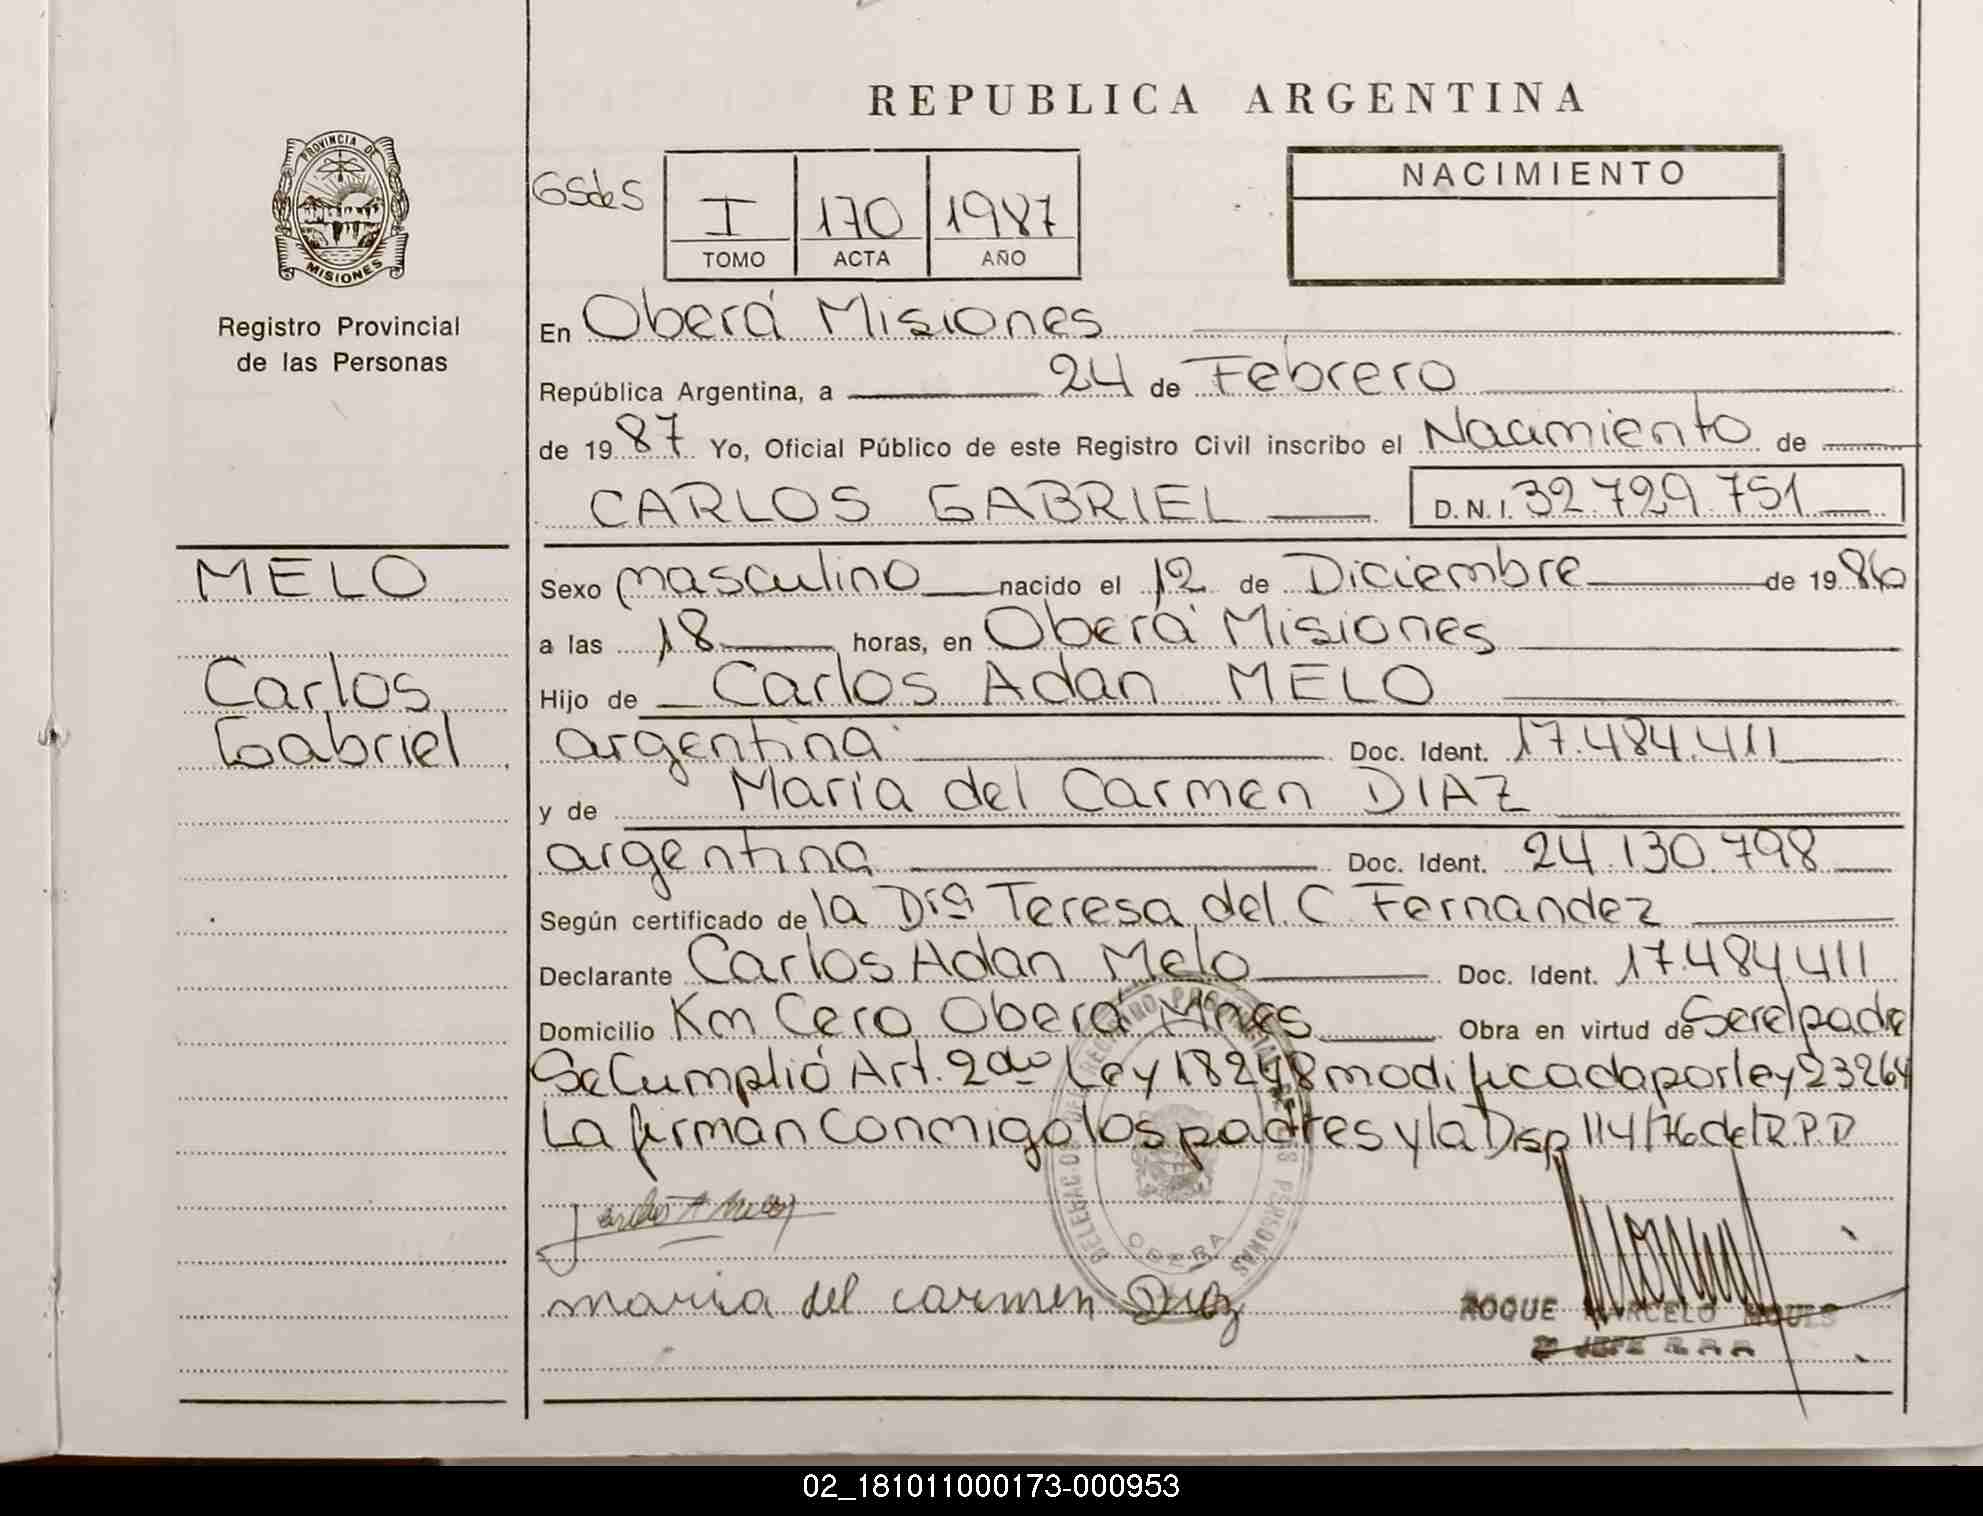 REPUBLICA ARGENTINA
PROVINCIA DE
MISIONES
Registro Provincial
de las Personas
GSdeS
I 170 1987
TOMO ACTA AÑO
NACIMIENTO
En Oberá Misiones
República Argentina, a 24 de Febrero
de 1987 Yo, Oficial Público de este Registro Civil inscribo el Nacimiento de
CARLOS GABRIEL D.N.I. 32.729.751
MELO
Carlos
Gabriel
Sexo masculino nacido el 12 de Diciembre de 1986
a las 18 horas, en Oberá Misiones
Hijo de Carlos Adan MELO
argentina Doc. Ident. 17.484.411
y de Maria del Carmen DIAZ
argentina Doc. Ident. 24.130.798
Según certificado de la Dra Teresa del C Fernandez
Declarante Carlos Adan Melo Doc. Ident. 17.484.411
Domicilio Km Cero Oberá Mnes Obra en virtud de Ser el padre
Se Cumplió Art. 2do Ley 18248 modificada por ley 23264
La firman conmigo los padres y la Disp 114/76 del R.P.P
DELEGAC. DEL REGISTRO PROVINCIAL DE LAS PERSONAS
OBERA
Carlos A Melo
maria del carmen Diaz
ROQUE MARCELO
2º JEFE R.P.P.
02_181011000173-000953